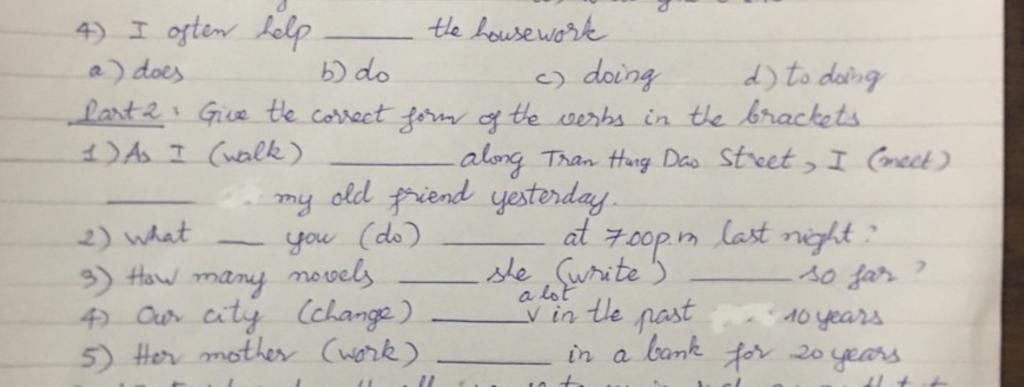 4) I often help ______ the housework
a) does b) do c) doing d) to doing
Part 2: Give the correct form of the verbs in the brackets
1) As I (walk) ______ along Tran Hung Dao Street, I (meet)
______ my old friend yesterday.
2) What ___ you (do) ______ at 7.00p.m last night?
3) How many novels ______ she (write) ______ so far?
a lot
4) Our city (change) ______ v in the past 10 years
5) Her mother (work) ______ in a bank for 20 years